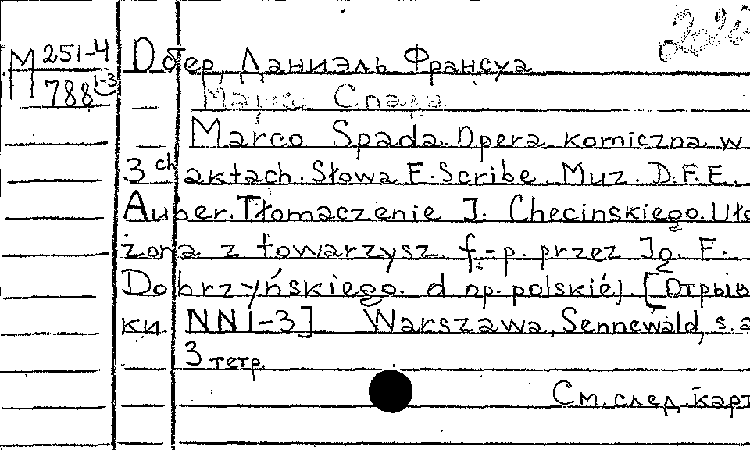 М 251-4
788 1-3
Обер, Даниэль Франсуа
Марко Спада
Marco Spada. Opera komiczna w
3ch aktach. Słowa E. Scribe. Muz. D.F.E.
Auber. Tłomaczenie J. Checinskiego. Uło
żona z towarzysz. f.-p. przez Ig. F.
Dobrzyńskiego. d op. polskiéj [Отрыв
ки NN1-3] Warszawa, Sennewald, s.a
3 тетр.
См. след. карт